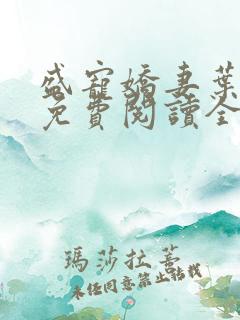 盛寵嬌妻葉
免費閱讀全
瑪莎拉蒂
未經同意禁止轉載